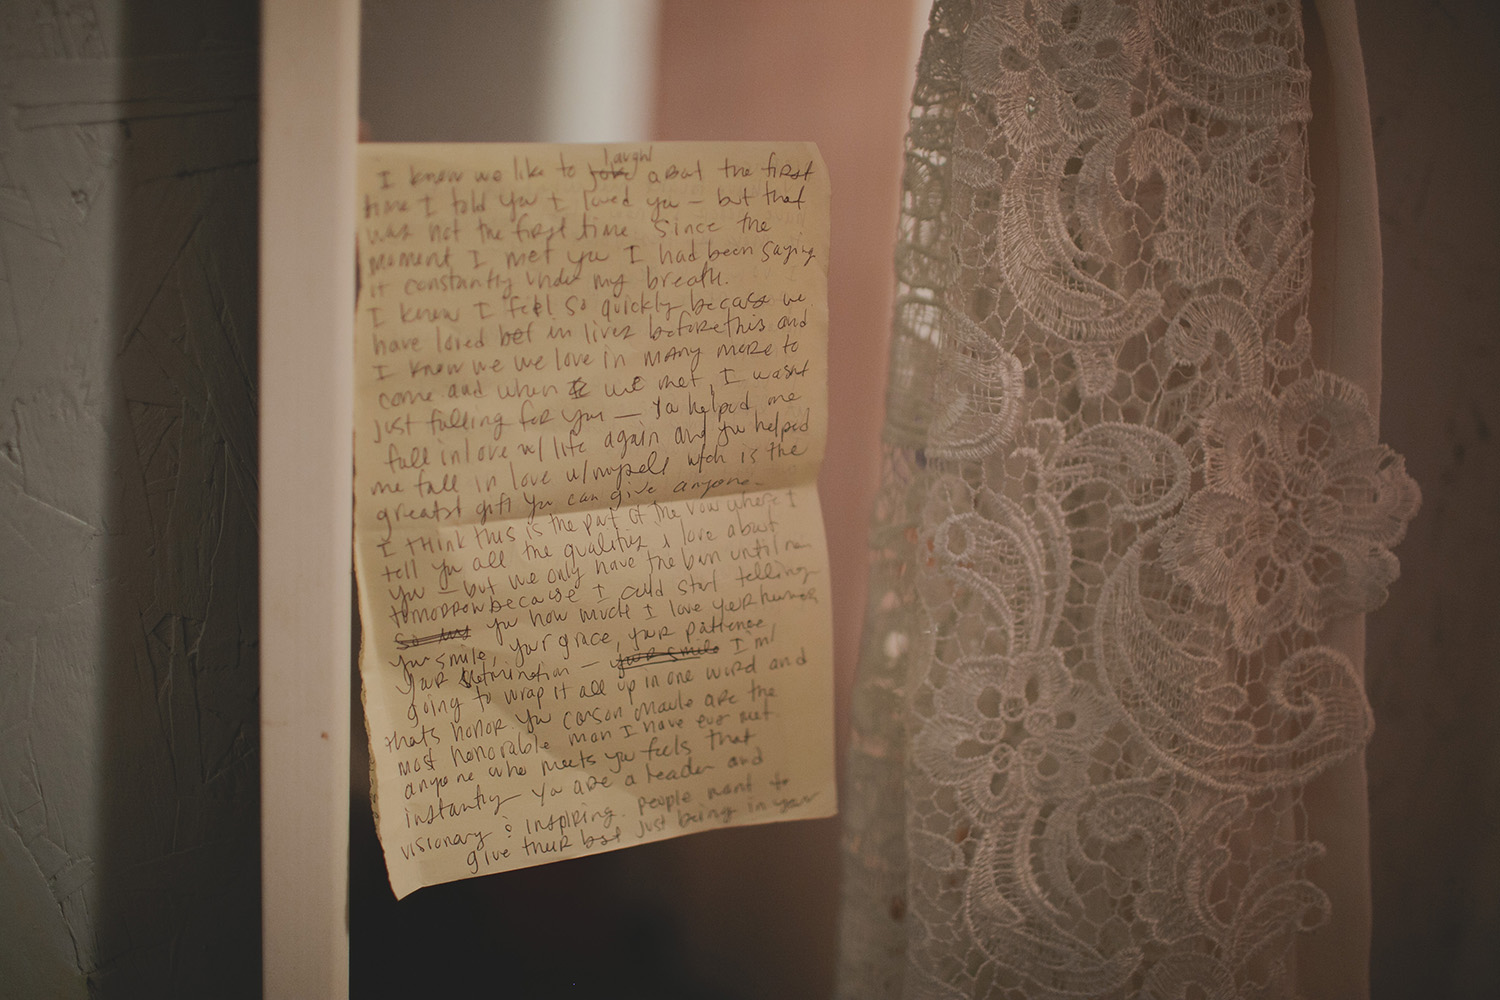 I know we like to joke laugh about the first
time I told you I loved you – but that
was not the first time since the
moment I met you I had been saying
it constantly under my breath.
I know I feel so quickly because we
have loved bef in lives before this and
I know we we love in many more to
come and when I we met, I wasnt
just falling for you — you helped me
fall in love w/ life again and you helped
me fall in love w/ myself wch is the
greatest gift you can give anyone.
I think this is the part of the vow where I
tell you all the qualities I love about
you – but we only have the barn until
tomorrow because I could start telling
so just you how much I love your humor,
your smile, your grace, your patience,
your determination – your smile I'm
going to wrap it all up in one word and
thats honor you carson are the
most honorable man I have ever met.
anyone who meets you feels that
instantly – you are a leader and
visionary & inspiring. people want to
give their best just being in your